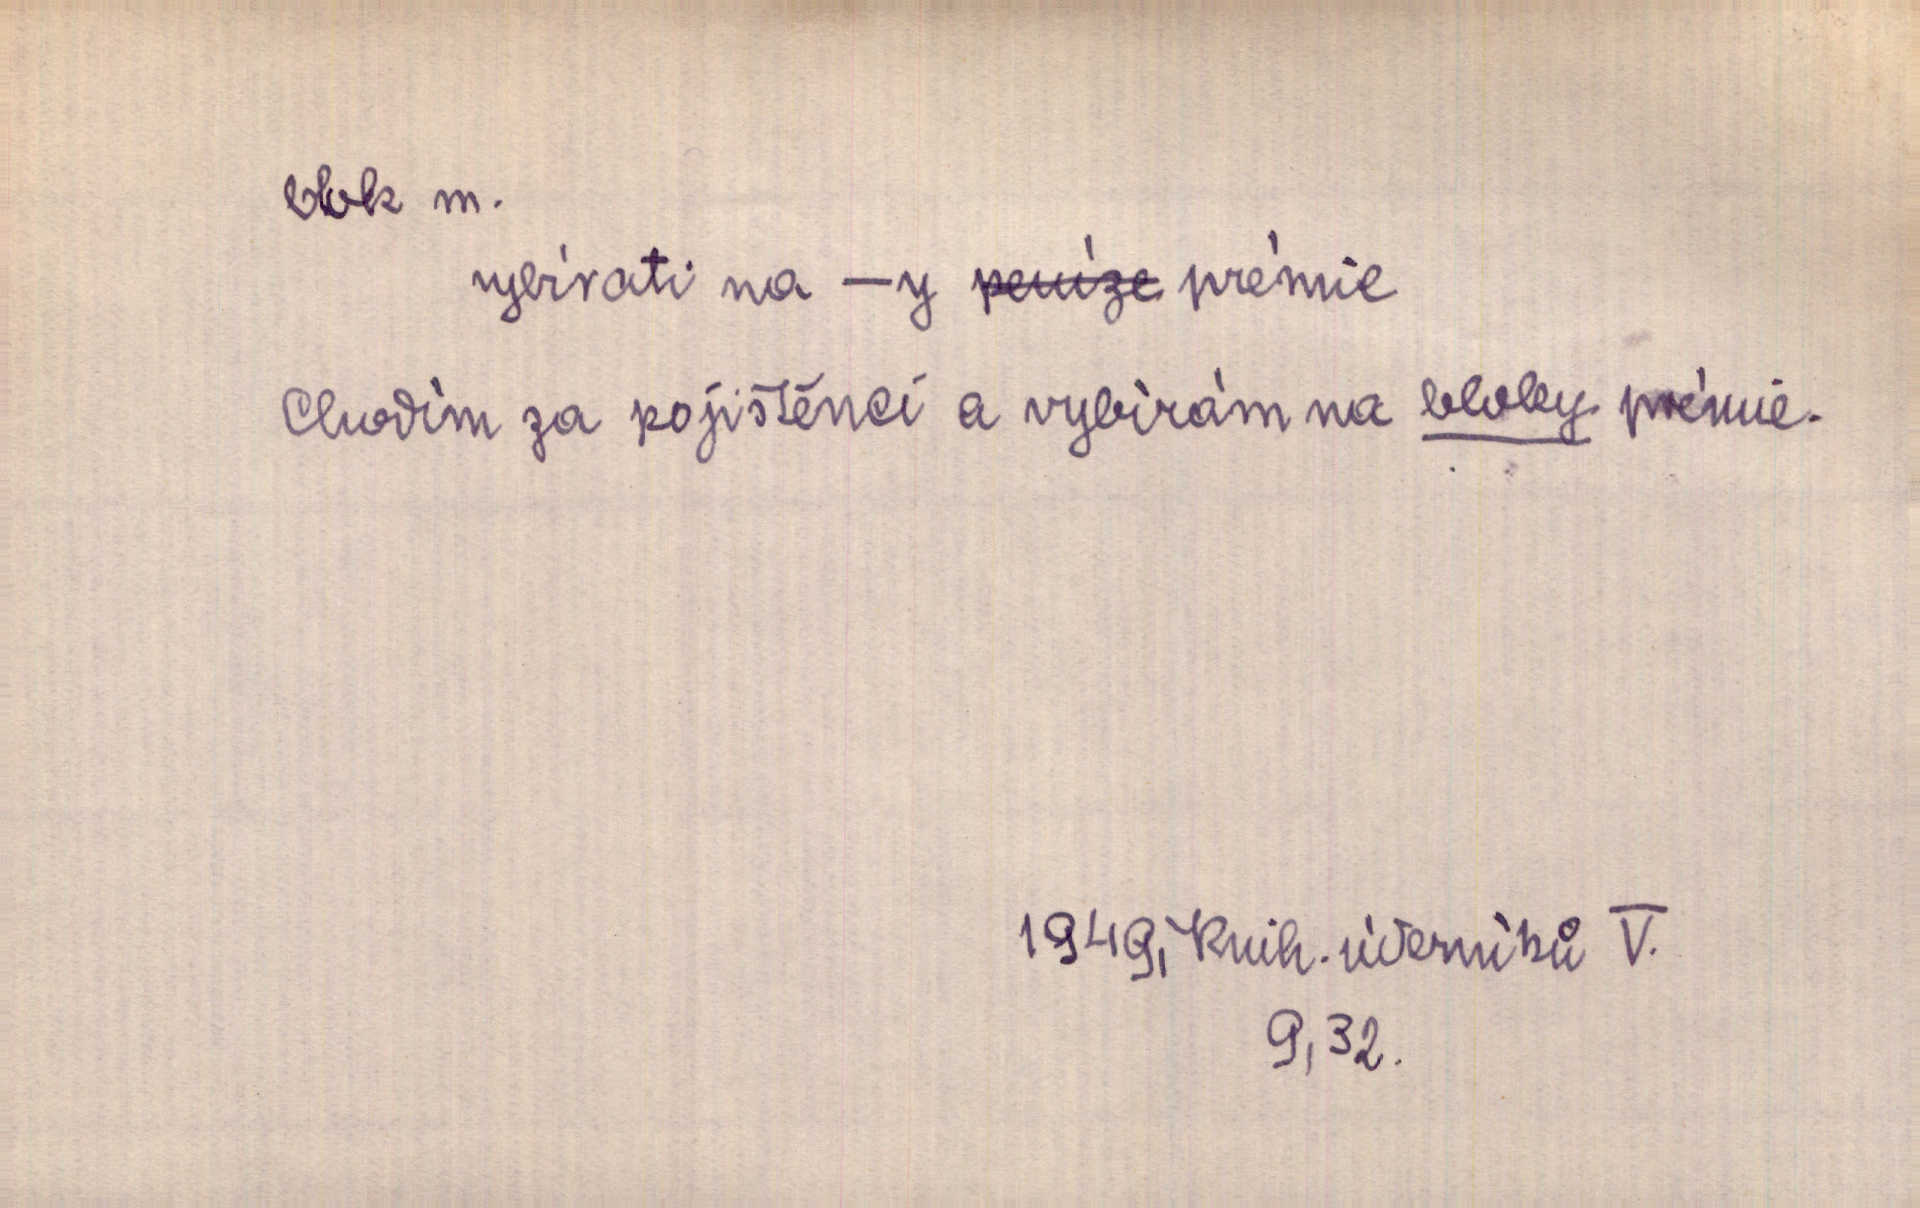 blok m.
vybírati na —y peníze prémie
Chodím za pojištěnci a vybírám na bloky prémie.
1949, Knih. úderníků V.
9, 32.